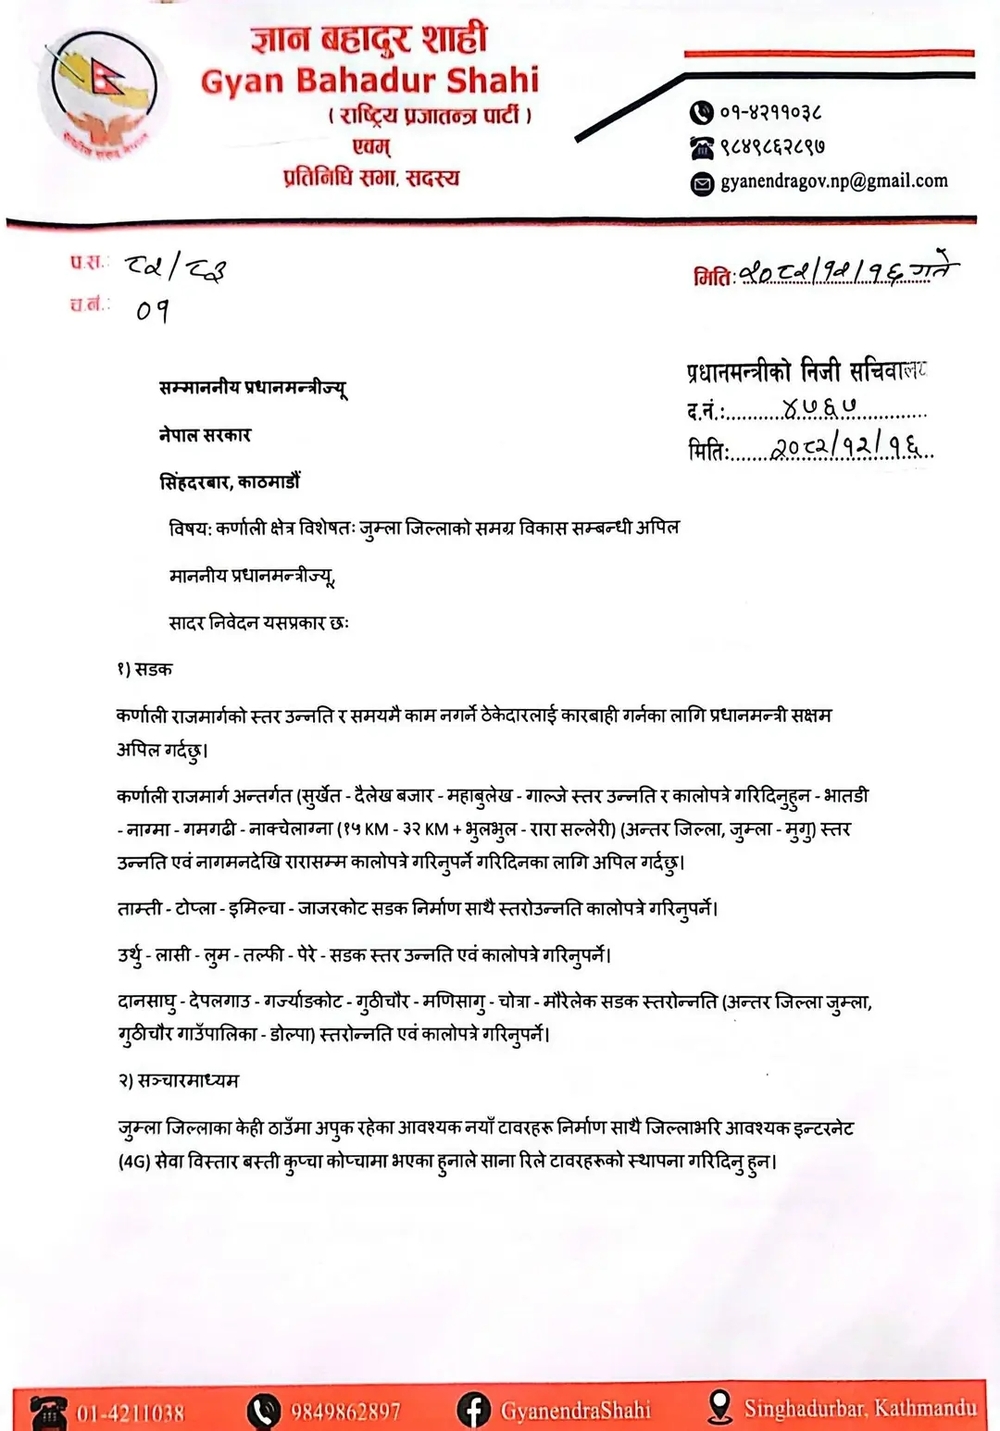 ज्ञान बहादुर शाही
Gyan Bahadur Shahi
( राष्ट्रिय प्रजातन्त्र पार्टी )
एवम्
प्रतिनिधि सभा, सदस्य
०१-४२११०३८
९८४९८६२८९७
gyanendragov.np@gmail.com
प.स.: ८२/८३
मिति: २०८२/१२/१६ गते
च.नं.: ०१
प्रधानमन्त्रीको निजी सचिवालय
द.नं.: ४७६७
मिति: २०८२/१२/१६
सम्माननीय प्रधानमन्त्रीज्यू
नेपाल सरकार
सिंहदरबार, काठमाडौं
विषय: कर्णाली क्षेत्र विशेषतः जुम्ला जिल्लाको समग्र विकास सम्बन्धी अपिल
माननीय प्रधानमन्त्रीज्यू,
सादर निवेदन यसप्रकार छः
१) सडक
कर्णाली राजमार्गको स्तर उन्नति र समयमै काम नगर्ने ठेकेदारलाई कारबाही गर्नका लागि प्रधानमन्त्री सक्षम
अपिल गर्दछु।
कर्णाली राजमार्ग अन्तर्गत (सुर्खेत - दैलेख बजार - महाबुलेख - गाल्जे स्तर उन्नति र कालोपत्रे गरिदिनुहुन - भातडी
- नाग्मा - गमगढी - नाक्चेलाग्ना (१५ KM - ३२ KM + भुलभुल - रारा सल्लेरी) (अन्तर जिल्ला, जुम्ला - मुगु) स्तर
उन्नति एवं नागमनदेखि रारासम्म कालोपत्रे गरिनुपर्ने गरिदिनका लागि अपिल गर्दछु।
ताम्ती - टोप्ला - इमिल्चा - जाजरकोट सडक निर्माण साथै स्तरोउन्नति कालोपत्रे गरिनुपर्ने।
उर्थु - लासी - लुम - तल्फी - पेरे - सडक स्तर उन्नति एवं कालोपत्रे गरिनुपर्ने।
दानसाघु - देपलगाउ - गर्ज्याङकोट - गुठीचौर - मणिसागु - चोत्रा - मौरेलेक सडक स्तरोन्नति (अन्तर जिल्ला जुम्ला,
गुठीचौर गाउँपालिका - डोल्पा) स्तरोन्नति एवं कालोपत्रे गरिनुपर्ने।
२) सञ्चारमाध्यम
जुम्ला जिल्लाका केही ठाउँमा अपुक रहेका आवश्यक नयाँ टावरहरू निर्माण साथै जिल्लाभरि आवश्यक इन्टरनेट
(4G) सेवा विस्तार बस्ती कुप्चा कोप्चामा भएका हुनाले साना रिले टावरहरूको स्थापना गरिदिनु हुन।
01-4211038
9849862897
GyanendraShahi
Singhadurbar, Kathmandu